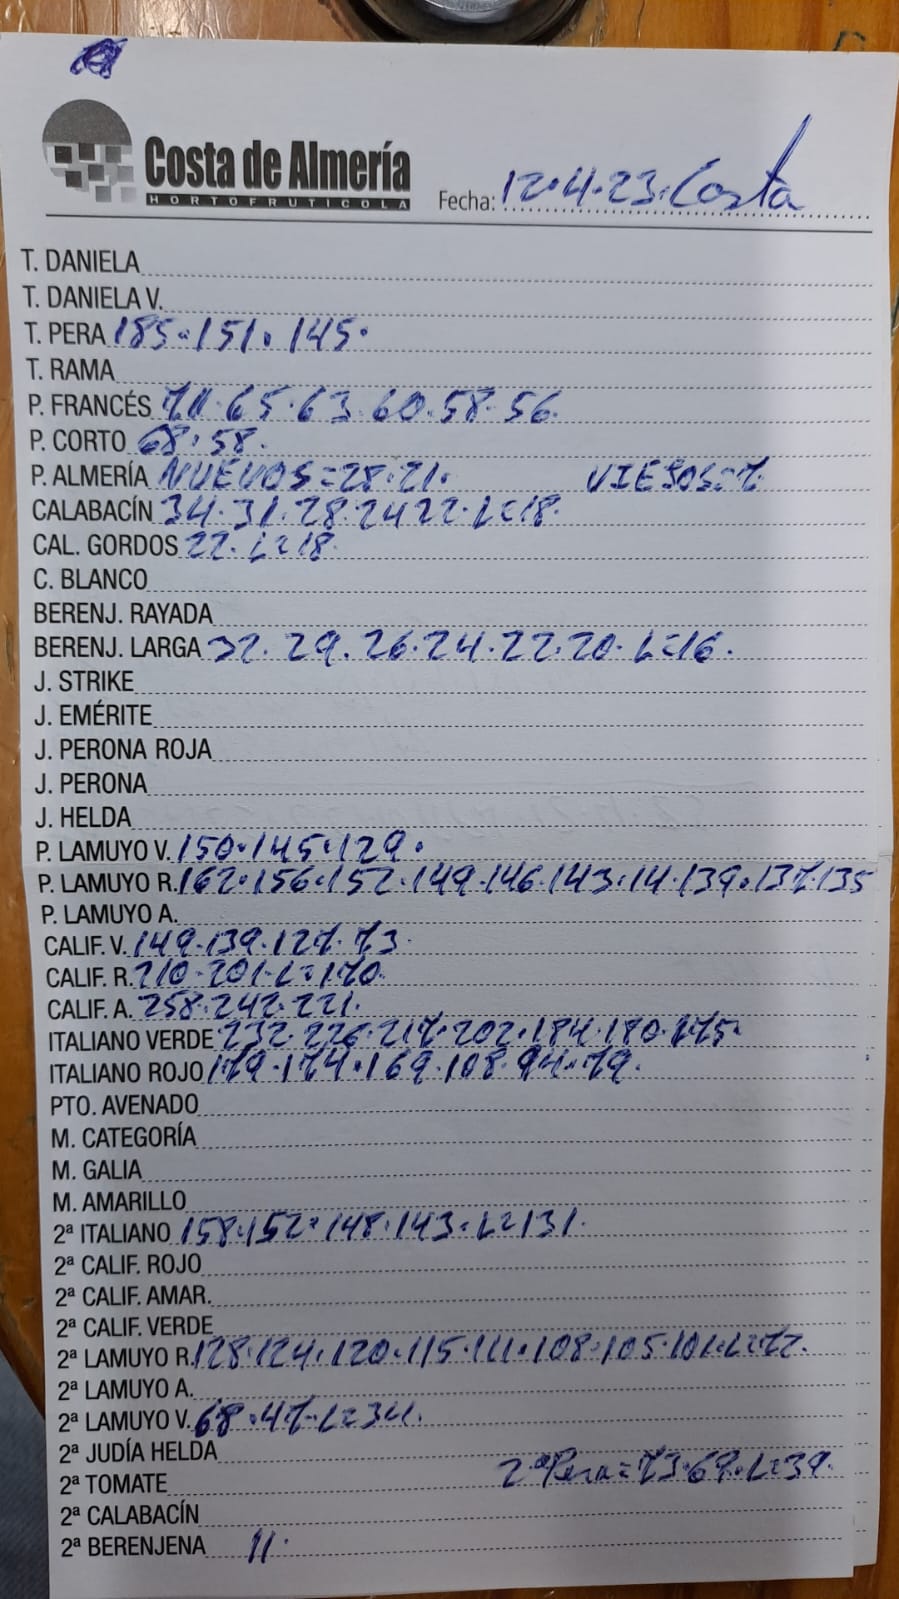 Costa de Almería
HORTOFRUTICOLA
Fecha: 12.4.23. Costa
T. DANIELA
T. DANIELA V.
T. PERA 185.151.145.
T. RAMA
P. FRANCÉS 65.63.60.58.56.
P. CORTO 68.58.
P. ALMERÍA NUEVOS=28.21. VIEJOS=7
CALABACÍN 34.31.28.24.22.L=18.
CAL. GORDOS 22.L=18.
C. BLANCO
BERENJ. RAYADA
BERENJ. LARGA 32.29.26.24.22.20.L=16.
J. STRIKE
J. EMÉRITE
J. PERONA ROJA
J. PERONA
J. HELDA
P. LAMUYO V. 150.145.129.
P. LAMUYO R. 162.156.152.149.146.143.14.139.137.135
P. LAMUYO A.
CALIF. V. 149.139.127.73.
CALIF. R. 210.201.L=170.
CALIF. A. 258.242.221.
ITALIANO VERDE 232.226.217.202.184.180.175.
ITALIANO ROJO 179.174.169.108.94.79.
PTO. AVENADO
M. CATEGORÍA
M. GALIA
M. AMARILLO
2ª ITALIANO 158.152.148.143.L=131.
2ª CALIF. ROJO
2ª CALIF. AMAR.
2ª CALIF. VERDE
2ª LAMUYO R. 128.124.120.115.111.108.105.101.L=72.
2ª LAMUYO A.
2ª LAMUYO V. 68.47.L=34.
2ª JUDÍA HELDA
2ª Pera=73.69.L=39.
2ª TOMATE
2ª CALABACÍN
2ª BERENJENA 11.